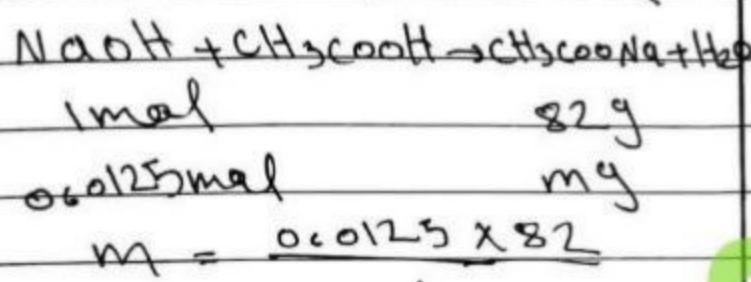 NaOH + CH3COOH → CH3COONa + H2O
1mol 82g
0,0125mol mg
m = 0,0125 x 82